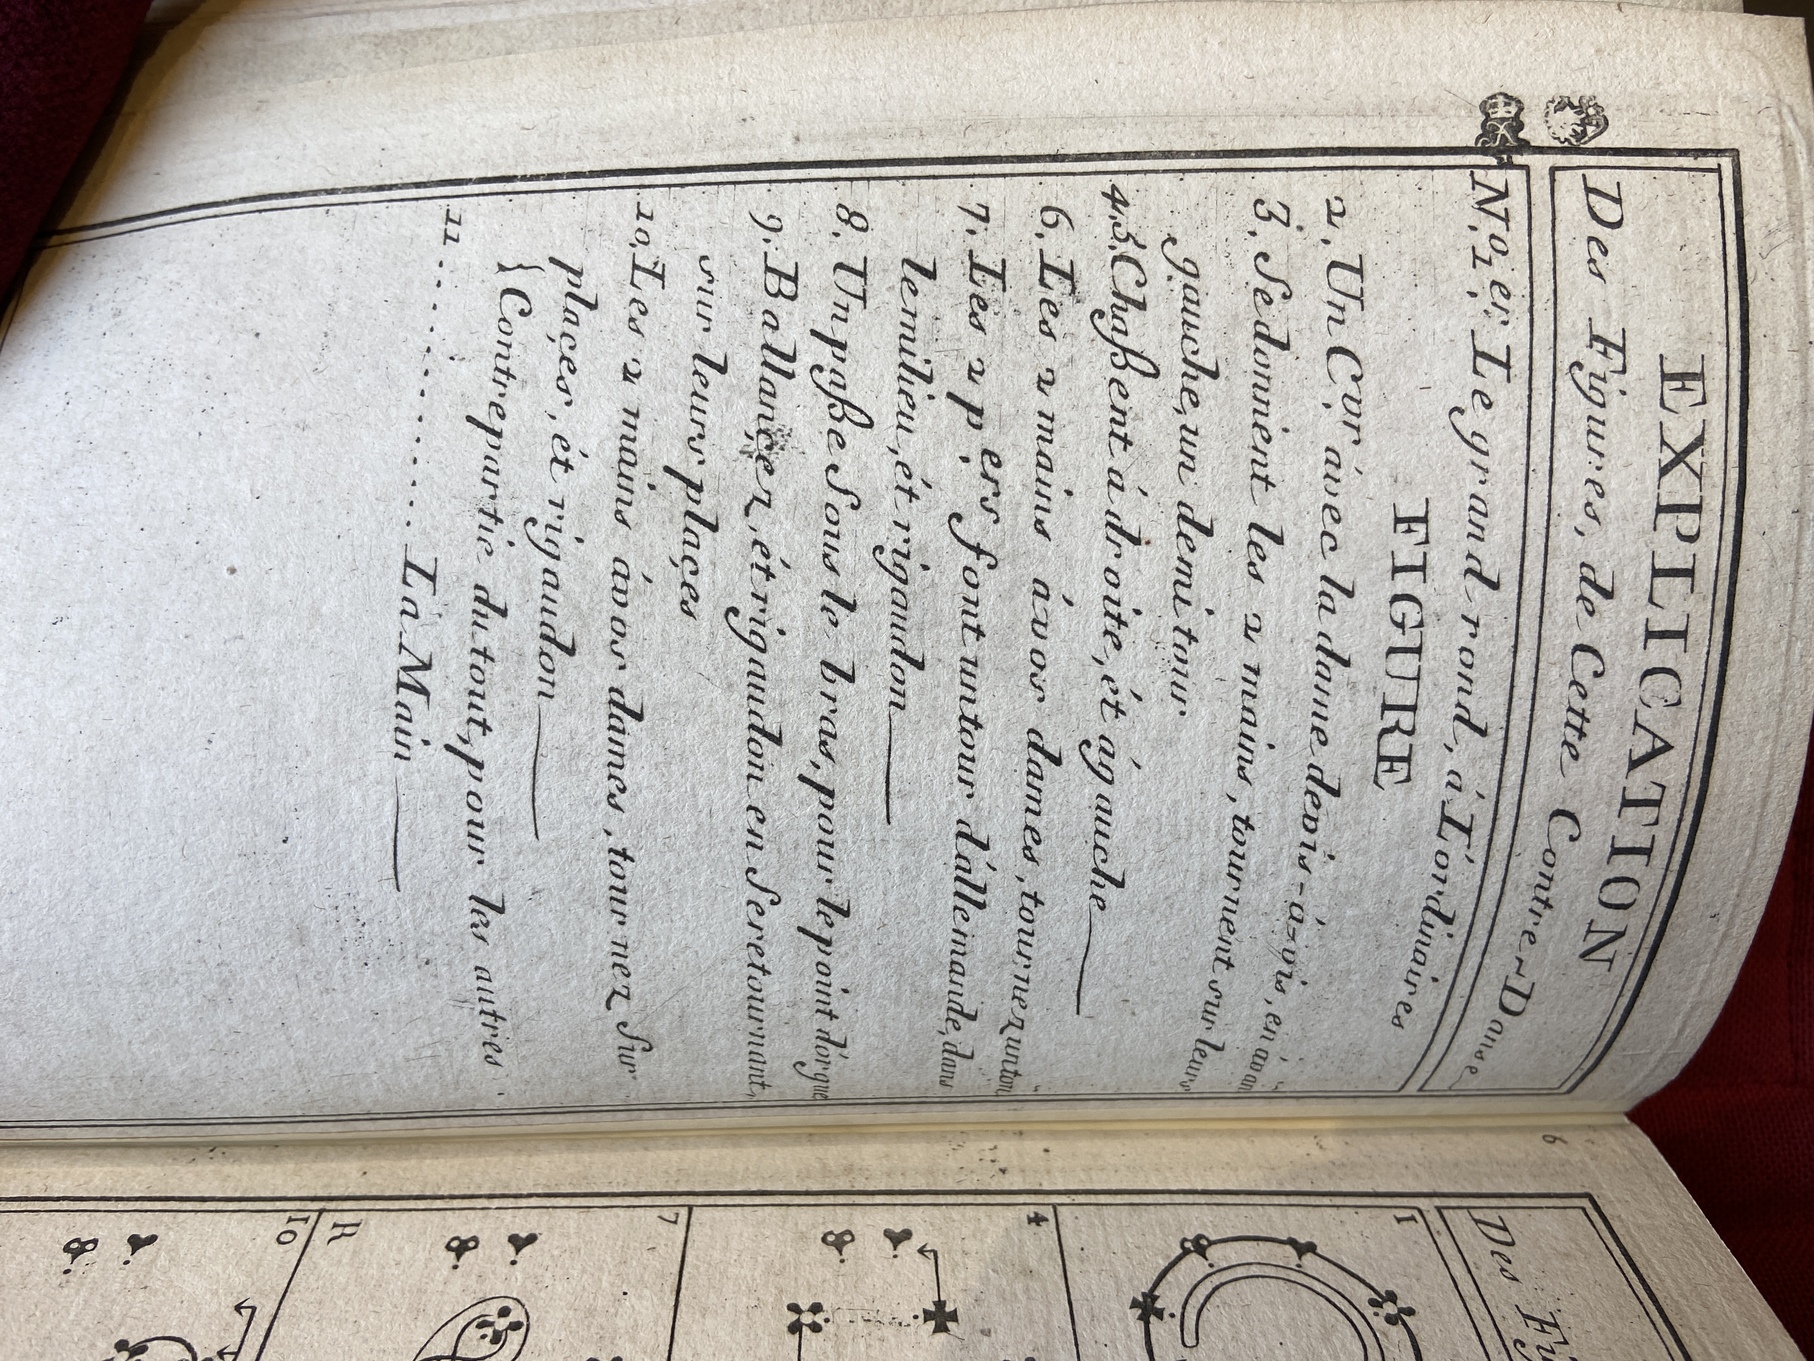 EXPLICATION
Des Figures, de Cette Contre-Danse
N.º 1.er Le grand rond, á L'ordinaires
FIGURE
2. Un C.vr ávec la dame devis-á-vis, en avan
3. Se donnent les 2 mains, tournent sur leurs
gauche, un demi tour
4.5. Chaßent á droite, ét ágauche
6. Les 2 mains ávos dames, tournez un tour
7. Les 2 p.ers font un tour d'allemande, dans
le milieu, ét rigaudon
8. Un paße Sous le bras, pour le point d'orgue
9. Ballançez, ét rigaudon en Se retournant,
sur leurs plaçes
10. Les 2 mains ávos dames, tournez Sur
plaçes, ét rigaudon
{ Contre partie du tout, pour les autres
11 . . . . . . . . . . . La Main
6
Des Fi
1
4
7
R
10